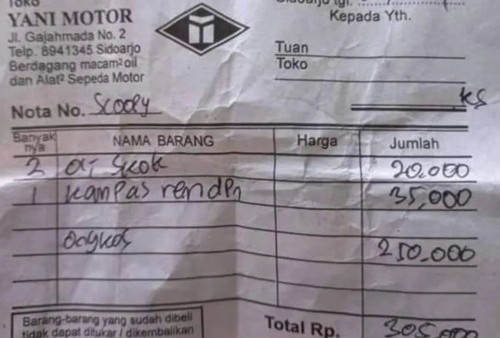 TOKO
YANI MOTOR
Jl. Gajahmada No. 2
Telp. 8941345 Sidoarjo
Berdagang macam² oil
dan Alat² Sepeda Motor
Sidoarjo tgl.
Kepada Yth.
Tuan
Toko
Nota No. Scoopy
KS
Banyak nya NAMA BARANG Harga Jumlah
2 skok 20.000
1 kampas rem dpn 35,000
ongkos 250.000
Barang-barang yang sudah dibeli
tidak dapat ditukar / dikembalikan
Total Rp. 305,000